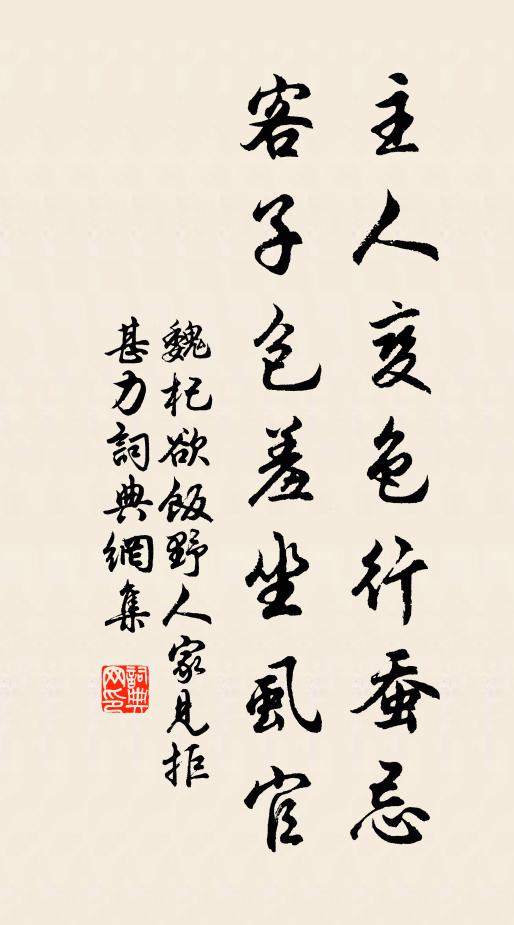 主人变色行蚕忌
客子包羞坐虱官
魏杞欲飯野人家見拒
甚力詞典網集
詞典
网印